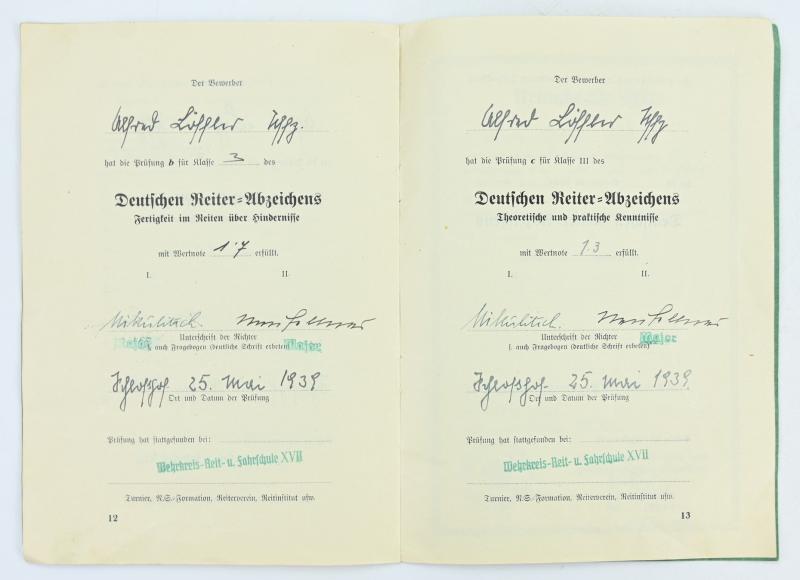 Der Bewerber
Alfred Löffler Uffz.
hat die Prüfung b für Klasse 3 des
Deutschen Reiter=Abzeichens
Fertigkeit im Reiten über Hindernisse
mit Wertnote 1·7 erfüllt.
I. II.
Mikulitsch.
Unterschrift der Richter
Major
(. auch Fragebogen (deutsche Schrift erbeten) Major
Schloßhof. 25. Mai 1939
Ort und Datum der Prüfung
Prüfung hat stattgefunden bei:
Wehrkreis-Reit- u. Fahrschule XVII
Turnier, N.S.-Formation, Reiterverein, Reitinstitut usw.
12
Der Bewerber
Alfred Löffler Uffz
hat die Prüfung c für Klasse III des
Deutschen Reiter=Abzeichens
Theoretische und praktische Kenntnisse
mit Wertnote 1.3 erfüllt.
I. II.
Mikulitsch.
Unterschrift der Richter
(. auch Fragebogen (deutsche Schrift erbeten) Major
Schloßhof. 25. Mai 1939
Ort und Datum der Prüfung
Prüfung hat stattgefunden bei:
Wehrkreis-Reit- u. Fahrschule XVII
Turnier, N.S.-Formation, Reiterverein, Reitinstitut usw.
13